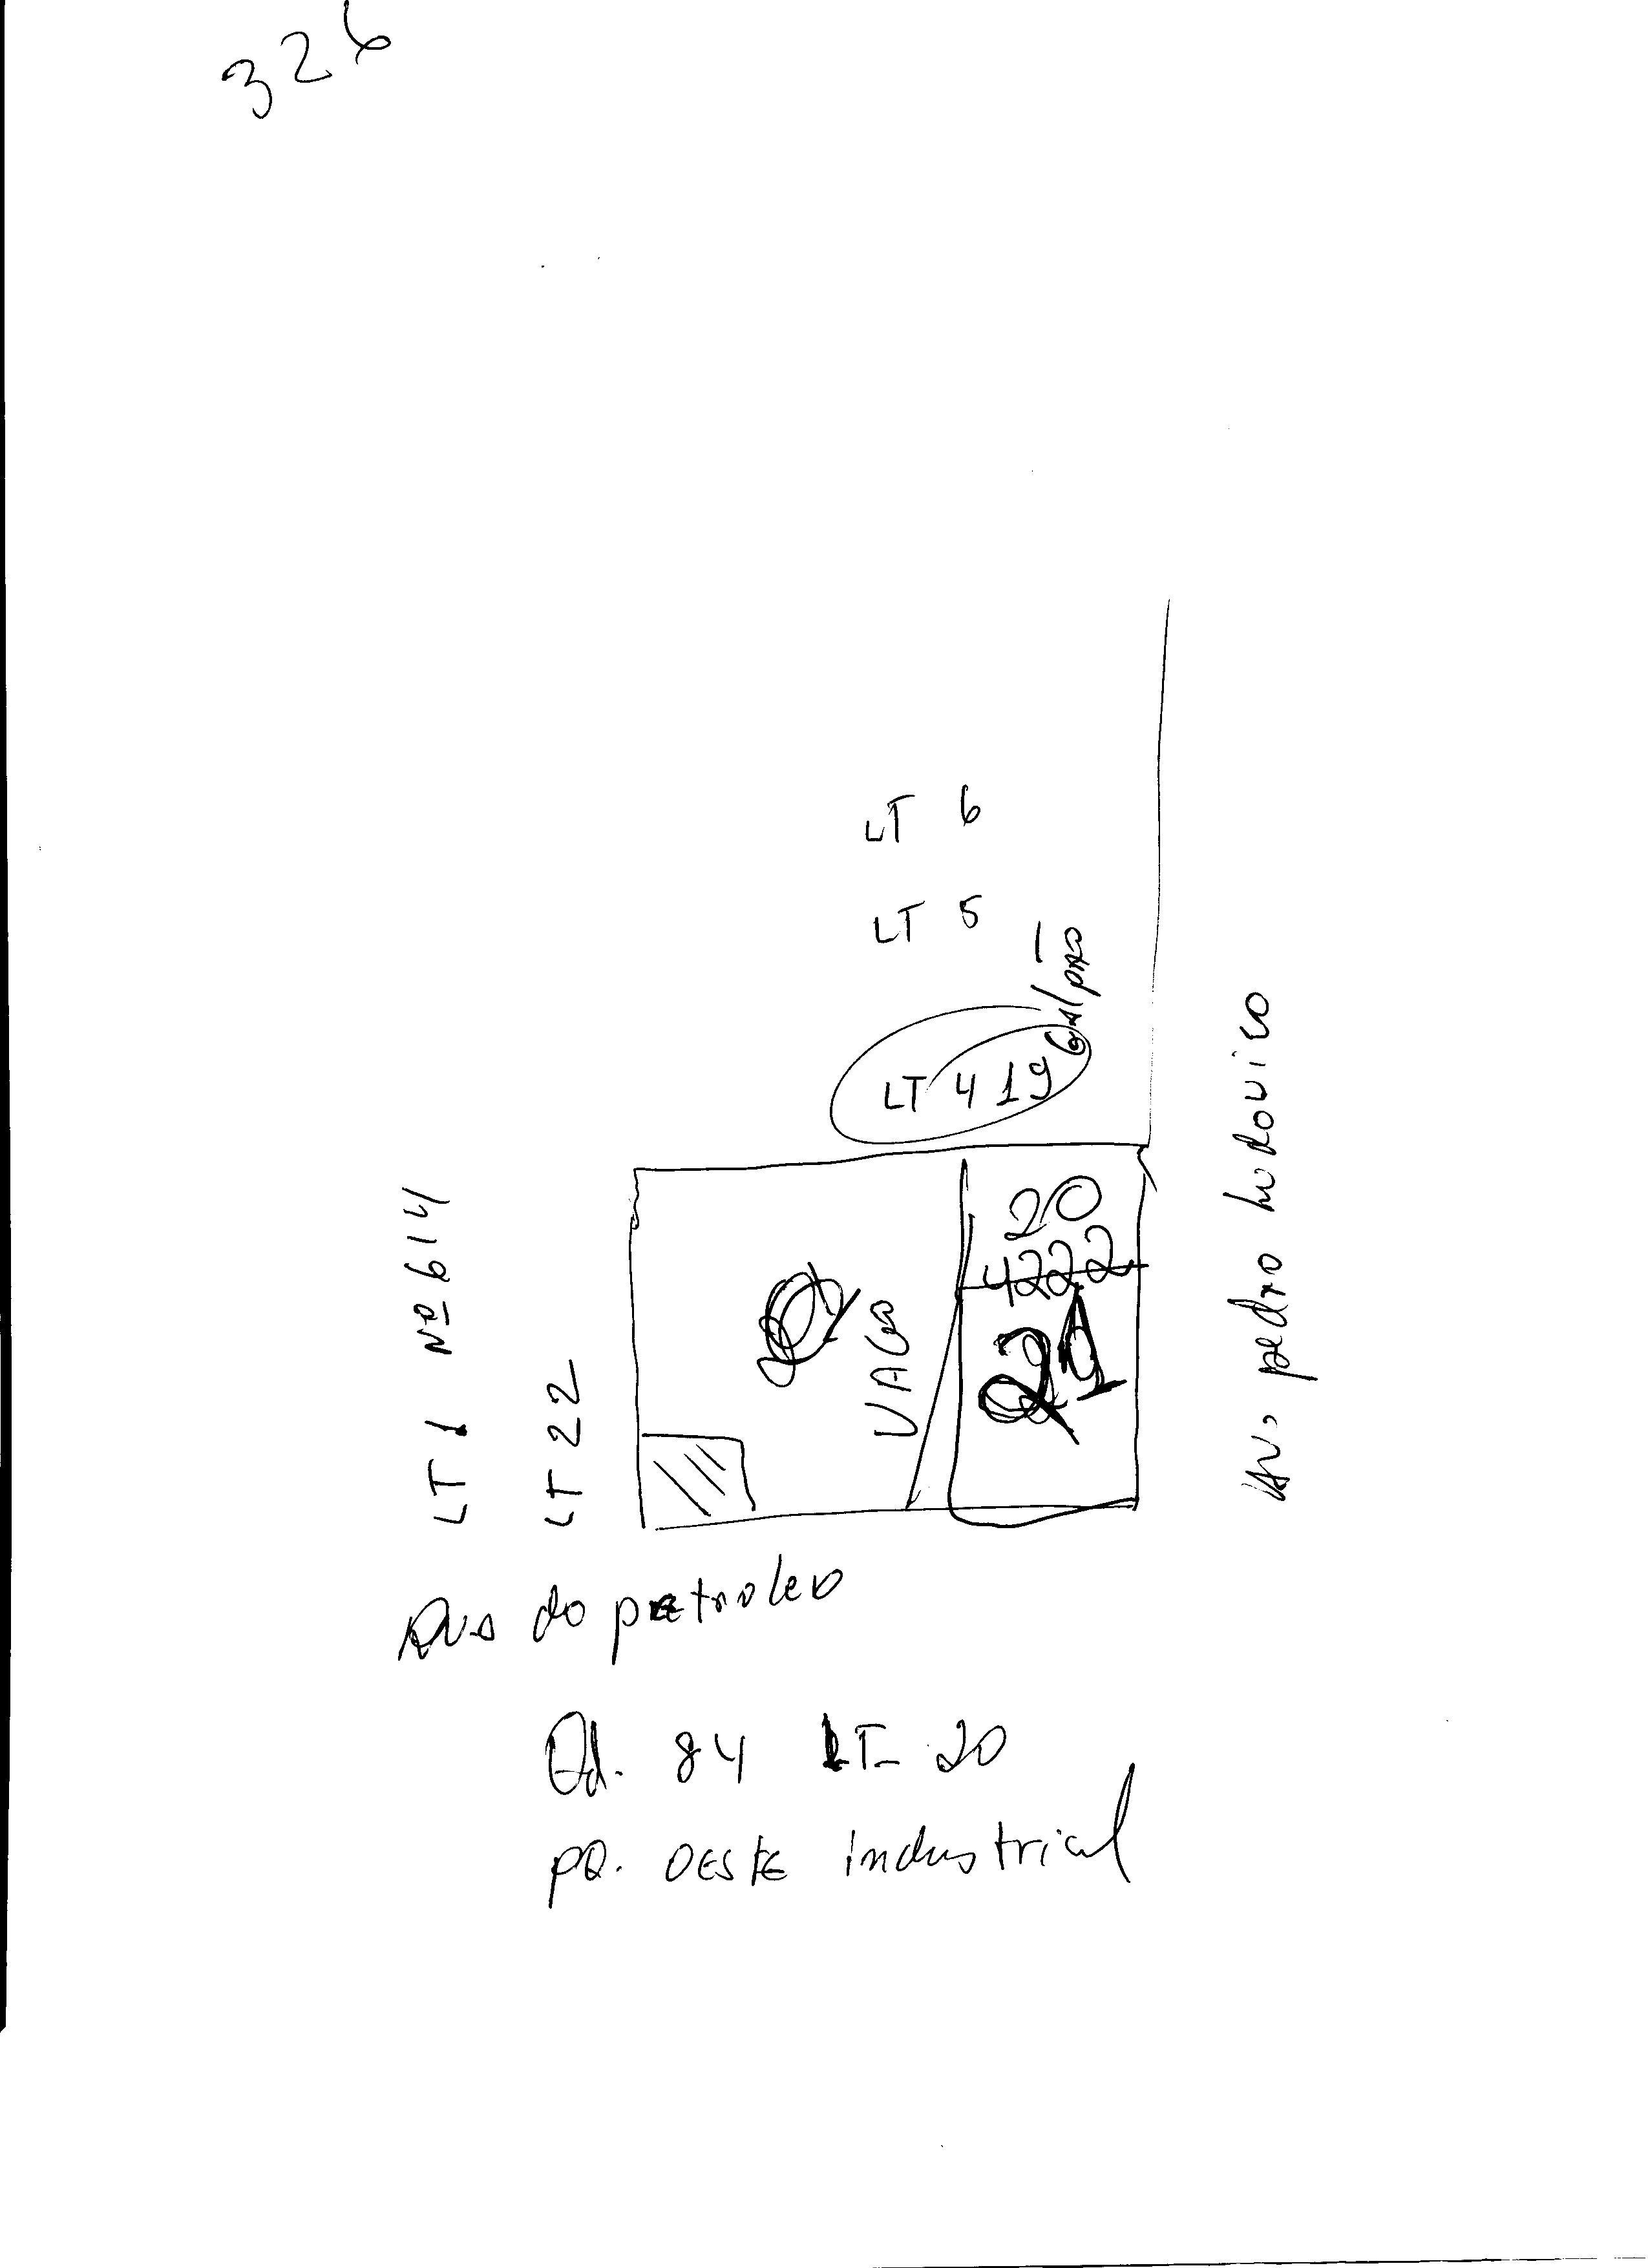 326
LT 6
LT 5
LT 4 19
20
4222
21
VAGO
LT 1 Nº 614
LT 22
Av. pedro ludovico
Rua do petroleo
Qd. 84 LT- 20
PQ. OESTE industrial